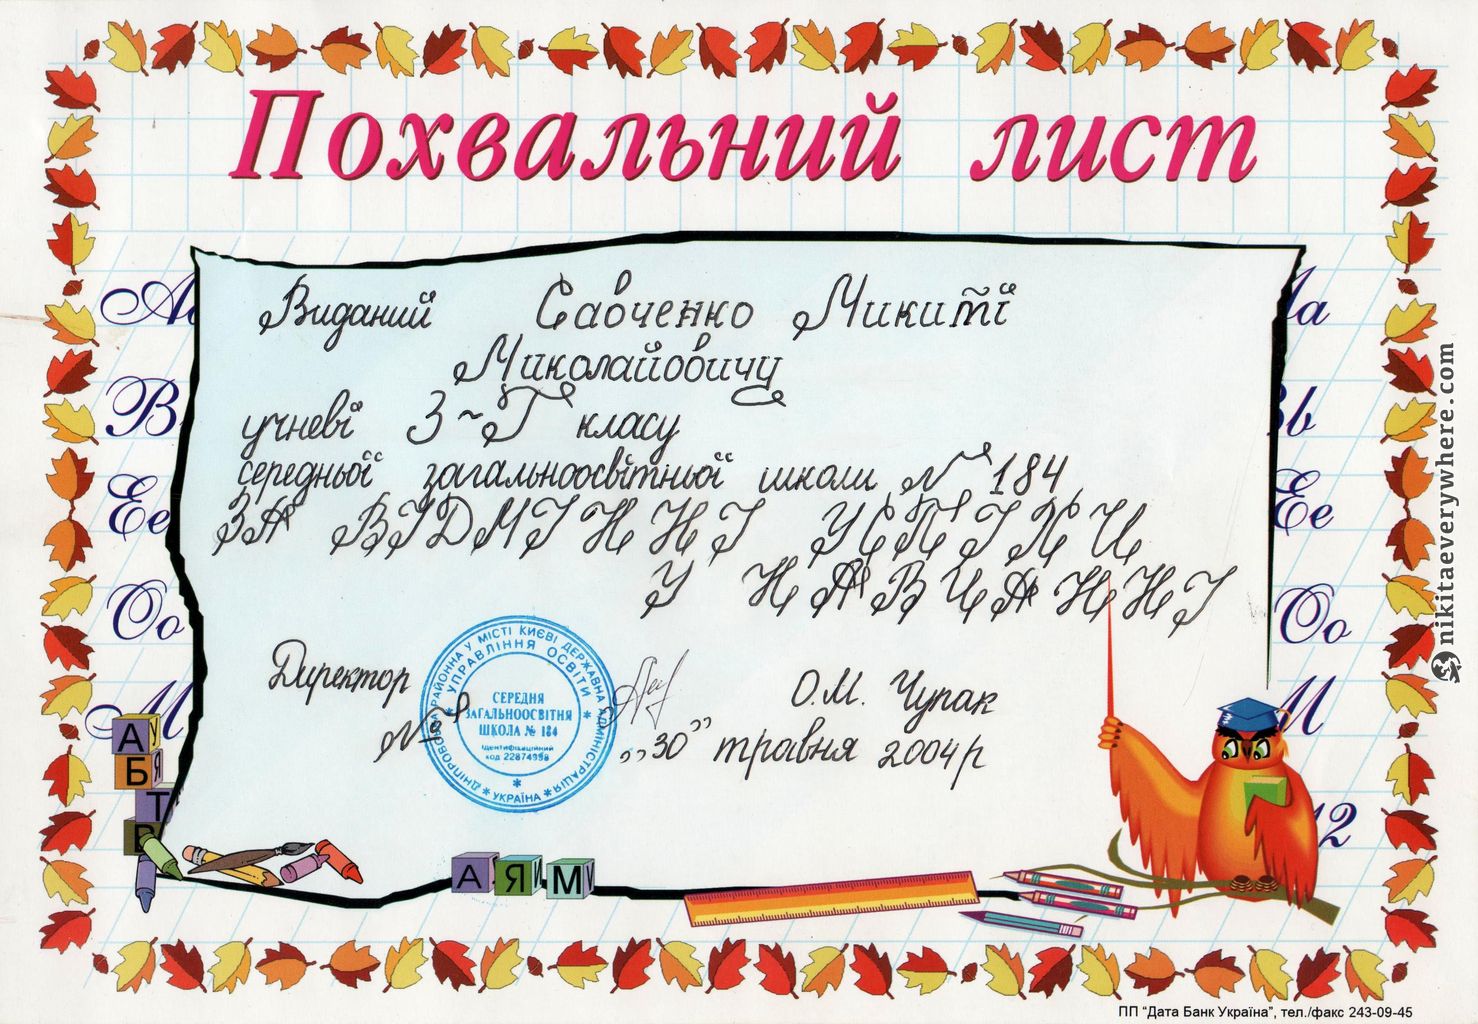 Похвальний лист
Аа
Ва
Вь
Ее
Ее
Оо
Оо
М
М
12
Виданий Савченко Микиті
Миколайовичу
учневі 3~Г класу
середньої загальноосвітньої школи № 184
ЗА ВІДМІННІ УСПІХИ
У НАВЧАННІ
Директор О.М. Чупак
№
„30” травня 2004 р
ДНІПРОВСЬКА РАЙОННА У МІСТІ КИЄВІ ДЕРЖАВНА АДМІНІСТРАЦІЯ
УПРАВЛІННЯ ОСВІТИ
СЕРЕДНЯ
ЗАГАЛЬНООСВІТНЯ
ШКОЛА № 184
Ідентифікаційний
код 22874998
* УКРАЇНА *
А У
Б Я
Т
В
А Я И М И
nikitaeverywhere.com
ПП "Дата Банк Україна", тел./факс 243-09-45